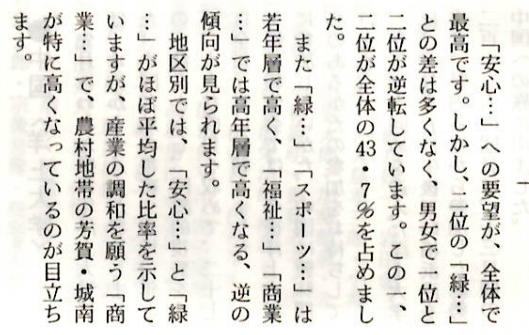 「安心…」への要望が、全体で
最高です。しかし、二位の「緑…」
との差は多くなく、男女で一位と
二位が逆転しています。この一、
二位が全体の43・7％を占めまし
た。
また「緑…」「スポーツ…」は
若年層で高く、「福祉…」「商業
…」では高年層で高くなる、逆の
傾向が見られます。
地区別では、「安心…」と「緑
…」がほぼ平均した比率を示して
いますが、産業の調和を願う「商
業…」で、農村地帯の芳賀・城南
が特に高くなっているのが目立ち
ます。